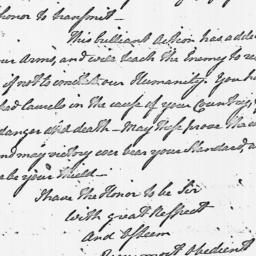 honor to transmit—
This brilliant Action has added
our Arms, and will teach the Enemy to re
if not to our Humanity. You h
Laurels in the cause of your Country,
danger and death— May these prove
and may victory ever bear your Standard, a
be your shield—
I have the Honor to be Sir
With great Respect
And Esteem
most Obedient